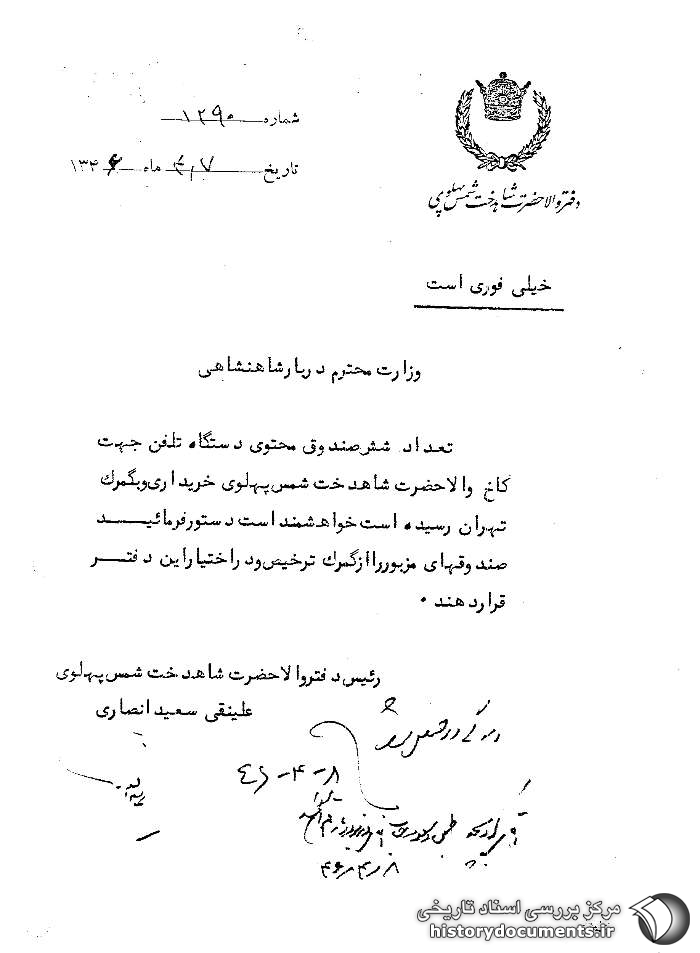 شماره ۱۲۹۰
تاریخ ۴٫۷ ماه ۱۳۴۶
دفتر والاحضرت شاهدخت شمس پهلوی
خیلی فوری است
وزارت محترم دربار شاهنشاهی
تعداد شش صندوق محتوی دستگاه تلفن جهت
کاخ والاحضرت شاهدخت شمس پهلوی خریداری و بگمرک
تهران رسیده است خواهشمند است دستور فرمائید
صندوقهای مزبور را از گمرک ترخیص و در اختیار این دفتر
قرار دهند ۰
رئیس دفتر والاحضرت شاهدخت شمس پهلوی
علینقی سعید انصاری
۴۶-۴-۸
۴۶٫۴٫۸
مرکز بررسی اسناد تاریخی
historydocuments.ir